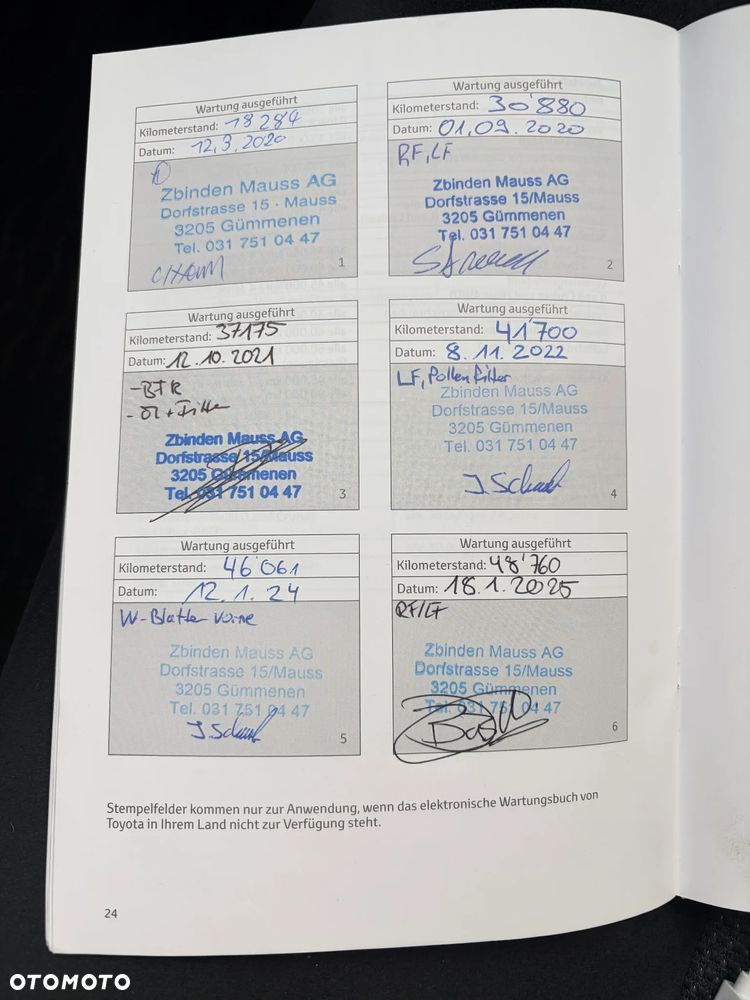 Wartung ausgeführt
Kilometerstand: 18284
Datum: 12.3.2020
Zbinden Mauss AG
Dorfstrasse 15 · Mauss
3205 Gümmenen
Tel. 031 751 04 47
1
Wartung ausgeführt
Kilometerstand: 30'880
Datum: 01.09.2020
RF, LF
Zbinden Mauss AG
Dorfstrasse 15/Mauss
3205 Gümmenen
Tel. 031 751 04 47
2
Wartung ausgeführt
Kilometerstand: 37'175
Datum: 12.10.2021
Zbinden Mauss AG
Dorfstrasse 15/Mauss
3205 Gümmenen
Tel. 031 751 04 47
3
Wartung ausgeführt
Kilometerstand: 41'700
Datum: 8.11.2022
LF, Pollenfilter
Zbinden Mauss AG
Dorfstrasse 15/Mauss
3205 Gümmenen
Tel. 031 751 04 47
4
Wartung ausgeführt
Kilometerstand: 46'061
Datum: 12.1.24
W-Blätter vorne
Zbinden Mauss AG
Dorfstrasse 15/Mauss
3205 Gümmenen
Tel. 031 751 04 47
5
Wartung ausgeführt
Kilometerstand: 48'760
Datum: 18.1.2025
RF/LF
Zbinden Mauss AG
Dorfstrasse 15/Mauss
3205 Gümmenen
Tel. 031 751 04 47
6
Stempelfelder kommen nur zur Anwendung, wenn das elektronische Wartungsbuch von
Toyota in Ihrem Land nicht zur Verfügung steht.
24
OTOMOTO